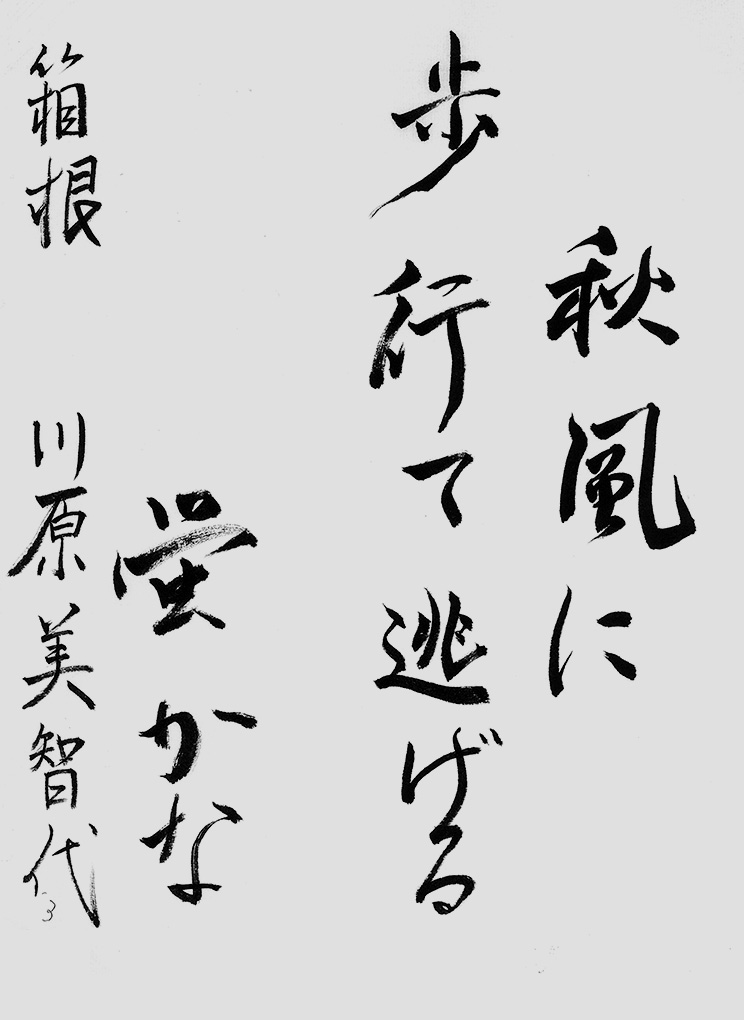 秋風に
歩行て逃げる
蛍かな
箱根 川原美智代
3